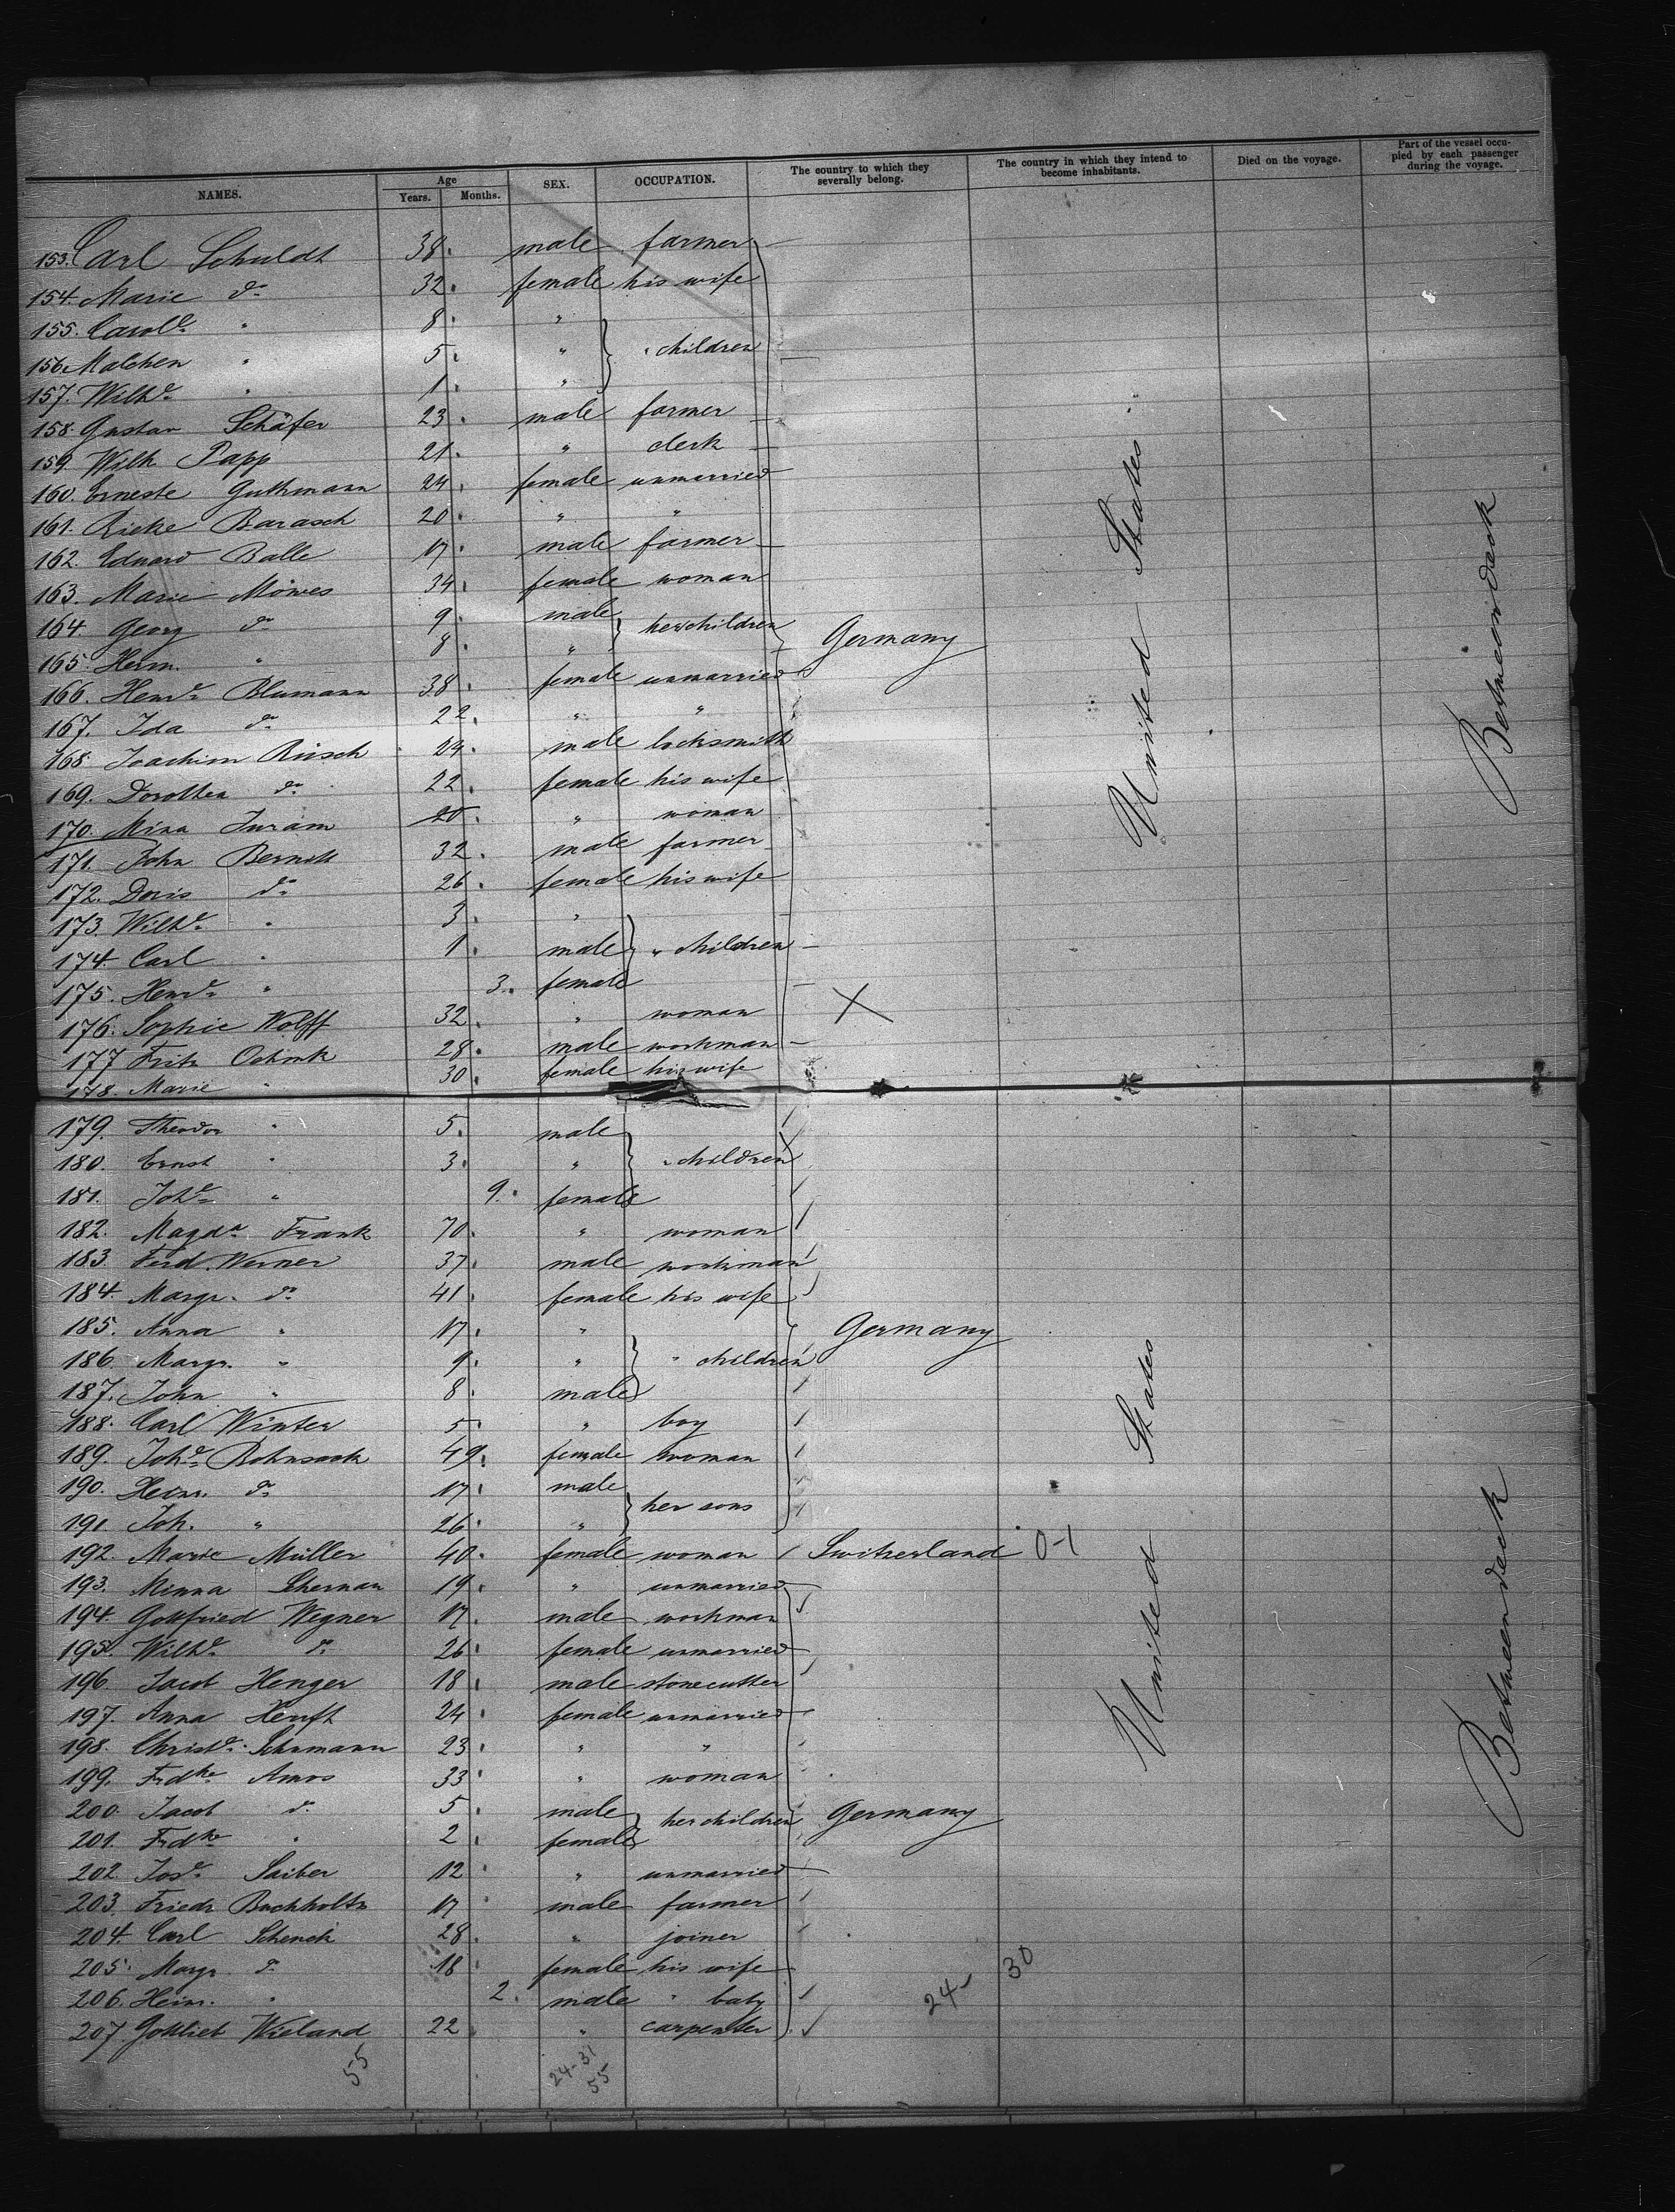 NAMES. Age Years. Months. SEX. OCCUPATION. The country to which they severally belong. The country in which they intend to become inhabitants. Died on the voyage. Part of the vessel occupied by each passenger during the voyage.
153. Carl Schuldt 38. male farmer
154. Marie do 32. female his wife
155. Carole " 8. "
156. Malchen " 5. " " children
157. Wilhe " 1. "
158. Gustav Schäfer 23. male farmer
159. Wilh Papp 21. " clerk
160. Erneste Guthmann 24. female unmarried
161. Rieke Barasch 20. " "
162. Eduard Balle 17. male farmer
163. Marie Möwes 34. female woman
164. Georg do 9. male her children
165. Herm. " 8. " Germany
166. Henre Blumann 38. female unmarried
167. Ida do 22. " "
168. Joachim Rüsch 24. male locksmith
169. Dorothea do 22. female his wife
170. Mina 20. " woman
171. John Berndt 32. male farmer
172. Doris do 26. female his wife
173. Wilhe " 3. "
174. Carl " 1. male " children
175. Henre " 3. female
176. Sophie Wolff 32. " woman X
177 Fritz 28. male workman
178. Marie " 30. female his wife
179. Theodor " 5. male
180. Ernst " 3. " " children
181. Johe " 9. female
182. Magda Frank 70. " woman
183. Ferd. Werner 37. male workman
184. Margr. do 41. female his wife
185. Anna " 17. " Germany
186. Margr. " 9. " " children
187. John " 8. male
188. Carl Winter 5. " boy
189. Johe Bohnsack 49. female woman
190. Heinr. do 17. male
191. Joh. " 26. " her sons
192. Marie Müller 40. female woman Switzerland 0-1
193. Minna Scherman 19. " unmarried
194. Gottfried Wegner 17. male workman
195. Wilhe do 26. female unmarried
196 Jacob Henger 18. male stonecutter
197. Anna Heruft 24. female unmarried
198. Christe Schumann 23. " "
199. Frdke Amos 33. " woman
200. Jacob do 5. male her children Germany
201. Frdke " 2. female
202. Jose Saiber 12. " unmarried
203. Friedr Buchholtz 17 male farmer
204. Carl Schenck 28. " joiner
205. Margr do 18. female his wife
206. Heinr. " 2. male " baby
207. Gottlieb Wieland 22 " carpenter
United States
Betweendeck
United States
Betweendeck
24- 30
55
24-31
55